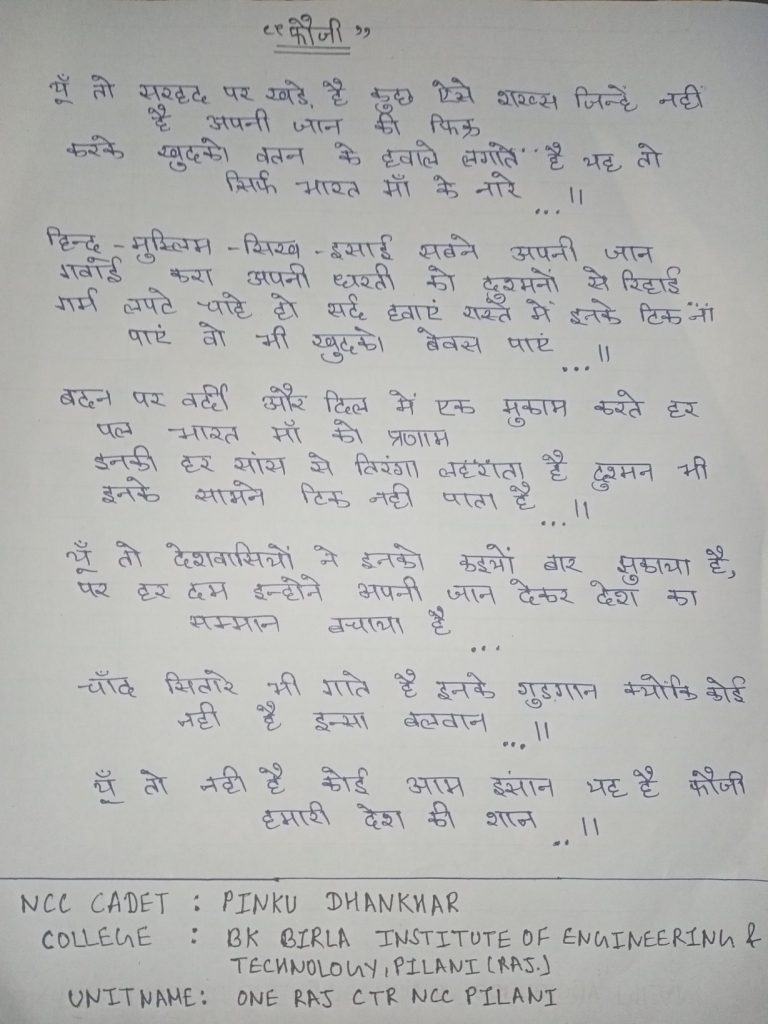 “फौजी”
यूँ तो सरहद पर खडे़ है कुछ ऐसे शख्स जिन्हें नहीं
है अपनी जान की फिक्र
करके खुदको वतन के हवाले लगाते है यह तो
सिर्फ भारत माँ के नारे ...||
हिन्दु-मुस्लिम-सिख-इसाई सबने अपनी जान
गवाई करा अपनी धरती को दुश्मनों से रिहाई
गर्म लपटे चाहे हो सर्द हवाएं रास्ते में इनके टिक ना
पाएं वो भी खुदको बेबस पाएं ...||
बदन पर वर्दी और दिल में एक मुकाम करते हर
पल भारत माँ को प्रणाम
इनकी हर सांस से तिरंगा लहराता है दुश्मन भी
इनके सामने टिक नही पाता है ...||
यूँ तो देशवासियों ने इनको कइयों बार झुकाया है,
पर हर दम इन्होने अपनी जान देकर देश का
सम्मान बचाया है ...
चाँद सितारे भी गाते है इनके गुड़गान क्योंकि कोई
नही है इन्सा बलवान ...||
यूँ तो नही है कोई आम इंसान यह है फौजी
हमारी देश की शान ..||
NCC CADET : PINKU DHANKHAR
COLLEGE : BK BIRLA INSTITUTE OF ENGINEERING &
TECHNOLOGY, PILANI (RAJ.)
UNITNAME: ONE RAJ CTR NCC PILANI